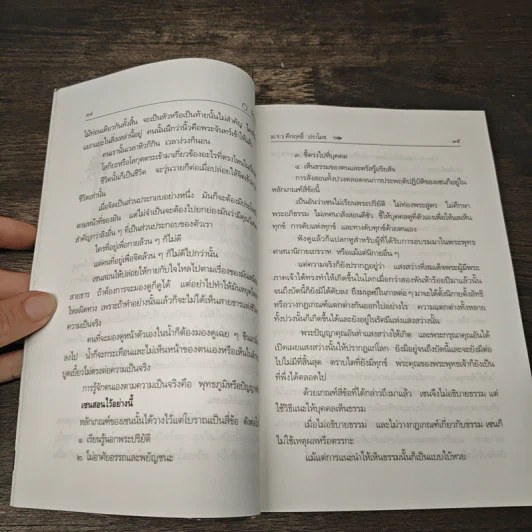 ๑๔
ไม้ท่อนเดียวกันทั้งสิ้น จะเป็นหัวหรือเป็นท้ายนั้นไม่สำคัญ
แยกแยะในสิ่งเหล่านี้อยู่ คนนั้นนึกว่านิ้วคือพระจันทร์เข้าให้แล้ว
คนเรานั้นเวลาหิวก็กิน เวลาง่วงก็นอน
โลกียะหรือโลกุตตระเข้ามาเกี่ยวข้องอะไรที่ตรงไหน
ชีวิตนั้นก็เป็นชีวิต จะวุ่นวายก็ต่อเมื่อปล่อยให้จิต
ชีวิตเท่านั้น
เมื่อจิตเป็นส่วนประกอบอย่างหนึ่ง มันก็จะต้องมี
ตามหน้าที่ของมัน แต่ไม่จำเป็นจะต้องไปยกย่องมันว่า
สำคัญกว่าสิ่งอื่น ๆ ที่เป็นส่วนประกอบของตัวเรา
ใครที่อยู่เพื่อกายล้วน ๆ ก็ไม่ดี
แต่คนที่อยู่เพื่อจิตล้วน ๆ ก็ไม่ดีไปกว่านั้น
เซนสอนให้ปล่อยให้กายกับใจไหลไปตามเรื่องของมัน
สายธาร ถ้าต้องการจะมองดูก็ดูได้ แต่อย่าไปทำให้มันหยุด
ไหลผิดทาง เพราะถ้าทำอย่างนั้นแล้วก็จะไม่ได้เห็นสายธาร
ความเป็นจริง
คนที่จะมองดูหน้าตัวเองในน้ำก็ต้องมองดูเฉย ๆ
ลงไป น้ำก็จะกระเทือนและไม่เห็นหน้าของตนเองหรือเห็น
บูดเบี้ยวไม่ตรงต่อความเป็นจริง
การรู้จักตนเองตามความเป็นจริงคือ พุทธภูมิหรือ
เซนสอนไว้อย่างนี้
หลักเกณฑ์ของเซนนั้นได้วางไว้แต่โบราณเป็นสี่ข้อ
๑. เรียนรู้นอกพระปริยัติ
๒. ไม่อาศัยอรรถและพยัญชนะ
ม.ร.ว.คึกฤทธิ์ ปราโมช
๑๕
๓. ชี้ตรงไปที่บุคคล
๔. เห็นธรรมของตนและตรัสรู้อริยสัจ
การสั่งสอนทั้งปวงตลอดจนการประพฤติปฏิบัติของเซนก็อยู่ใน
หลักเกณฑ์สี่ข้อนี้
เป็นอันว่าเซนไม่เรียนพระปริยัติ ไม่ท่องพระสูตร ไม่ศึกษา
พระอภิธรรม ไม่เทศนาสั่งสอนสี่ชั่ว ชี้ให้บุคคลดูที่ตัวเองเพื่อให้แลเห็น
ทุกข์ การดับแห่งทุกข์ และทางดับทุกข์ด้วยตนเอง
ฟังดูแล้วก็แปลกหูสำหรับผู้ที่ได้รับการอบรมมาในพระพุทธ
ศาสนานิกายเถรวาท หรือแม้แต่นิกายอื่น ๆ
แต่ความจริงก็ยังปรากฏอยู่ว่า แสงสว่างที่สมเด็จพระผู้มีพระ
ภาคเจ้าได้ทรงทำให้เกิดขึ้นในโลกเมื่อกว่าสองพันห้าร้อยปีมาแล้วนั้น
จนถึงบัดนี้ก็ยังมิได้ดับลง ถึงมนุษย์ในกาลต่อ ๆ มาจะได้ตั้งนิกายตั้งลัทธิ
หรือวางกฎเกณฑ์แตกต่างกันออกไปอย่างไร ความแตกต่างทั้งหลาย
ทั้งปวงนั้นก็เกิดขึ้นได้และยังอยู่ในรัศมีแห่งแสงสว่างนั้น
พระปัญญาคุณอันทำแสงสว่างให้เกิด และพระกรุณาคุณอันได้
เปิดเผยแสงสว่างนั้นให้ปรากฏแก่โลก ยังมีอยู่จนถึงบัดนี้และจะยังมีต่อ
ไปไม่มีที่สิ้นสุด ตราบใดที่ยังมีทุกข์ พระคุณของพระพุทธเจ้าก็ยังเป็น
ที่พึ่งได้ตลอดไป
ด้วยเกณฑ์สี่ข้อที่ได้กล่าวถึงมาแล้ว เซนจึงไม่อธิบายธรรม แต่
ใช้วิธีแนะให้บุคคลเห็นธรรม
เมื่อไม่อธิบายธรรม และไม่วางกฎเกณฑ์เกี่ยวกับธรรม เซนก็
ไม่ใช้เหตุผลหรือตรรกะ
แม้แต่การแนะนำให้เห็นธรรมนั้นก็เป็นแบบใบ้หวย